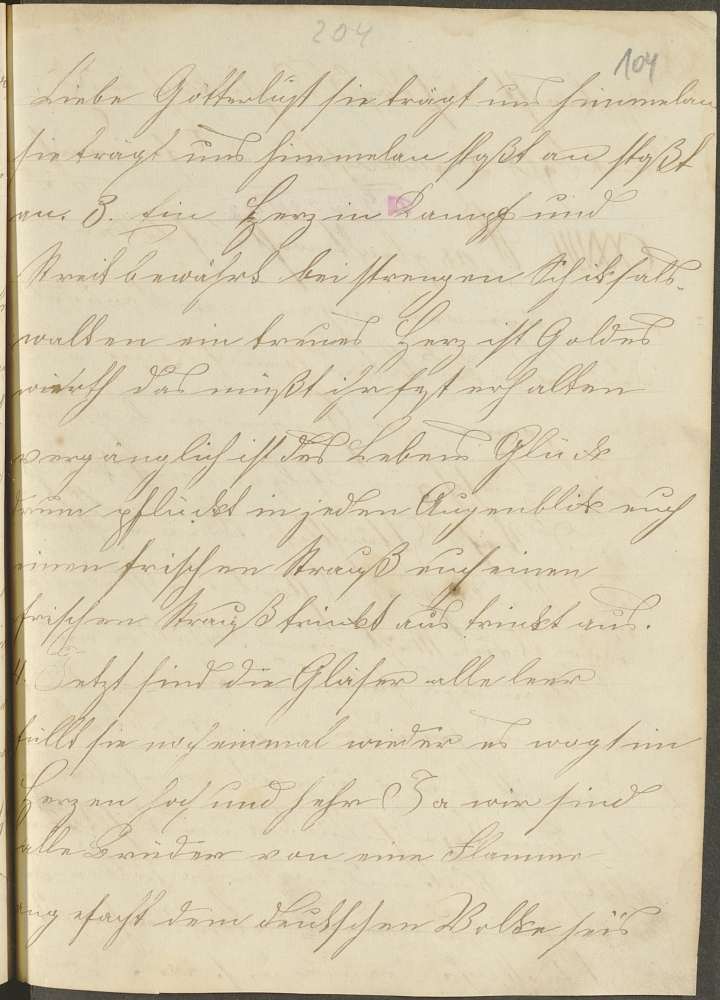 204
104
Liebe Götterlust sie trägt uns himmelan
sie trägt uns himmelan stoßt an stoßt
an. 3. Ein Herz in Kampf und
Streit bewährt bei strengen Schiksals-
walten ein treues Herz ist Goldes
wierth das müßt ihr fest erhalten
vergänglich ist des Lebens Glück
drum pflückt in jeden Augenblik euch
einen frischen Strauß euch einen
frischen Strauß trinkt aus trinkt aus.
4. Jetzt sind die Gläser alle leer
füllt sie noch einmal wieder es wogt im
Herzen hoch und hehr Ja wir sind
alle Brüder von eine Flamme
angefacht dem deutschen Volke seis